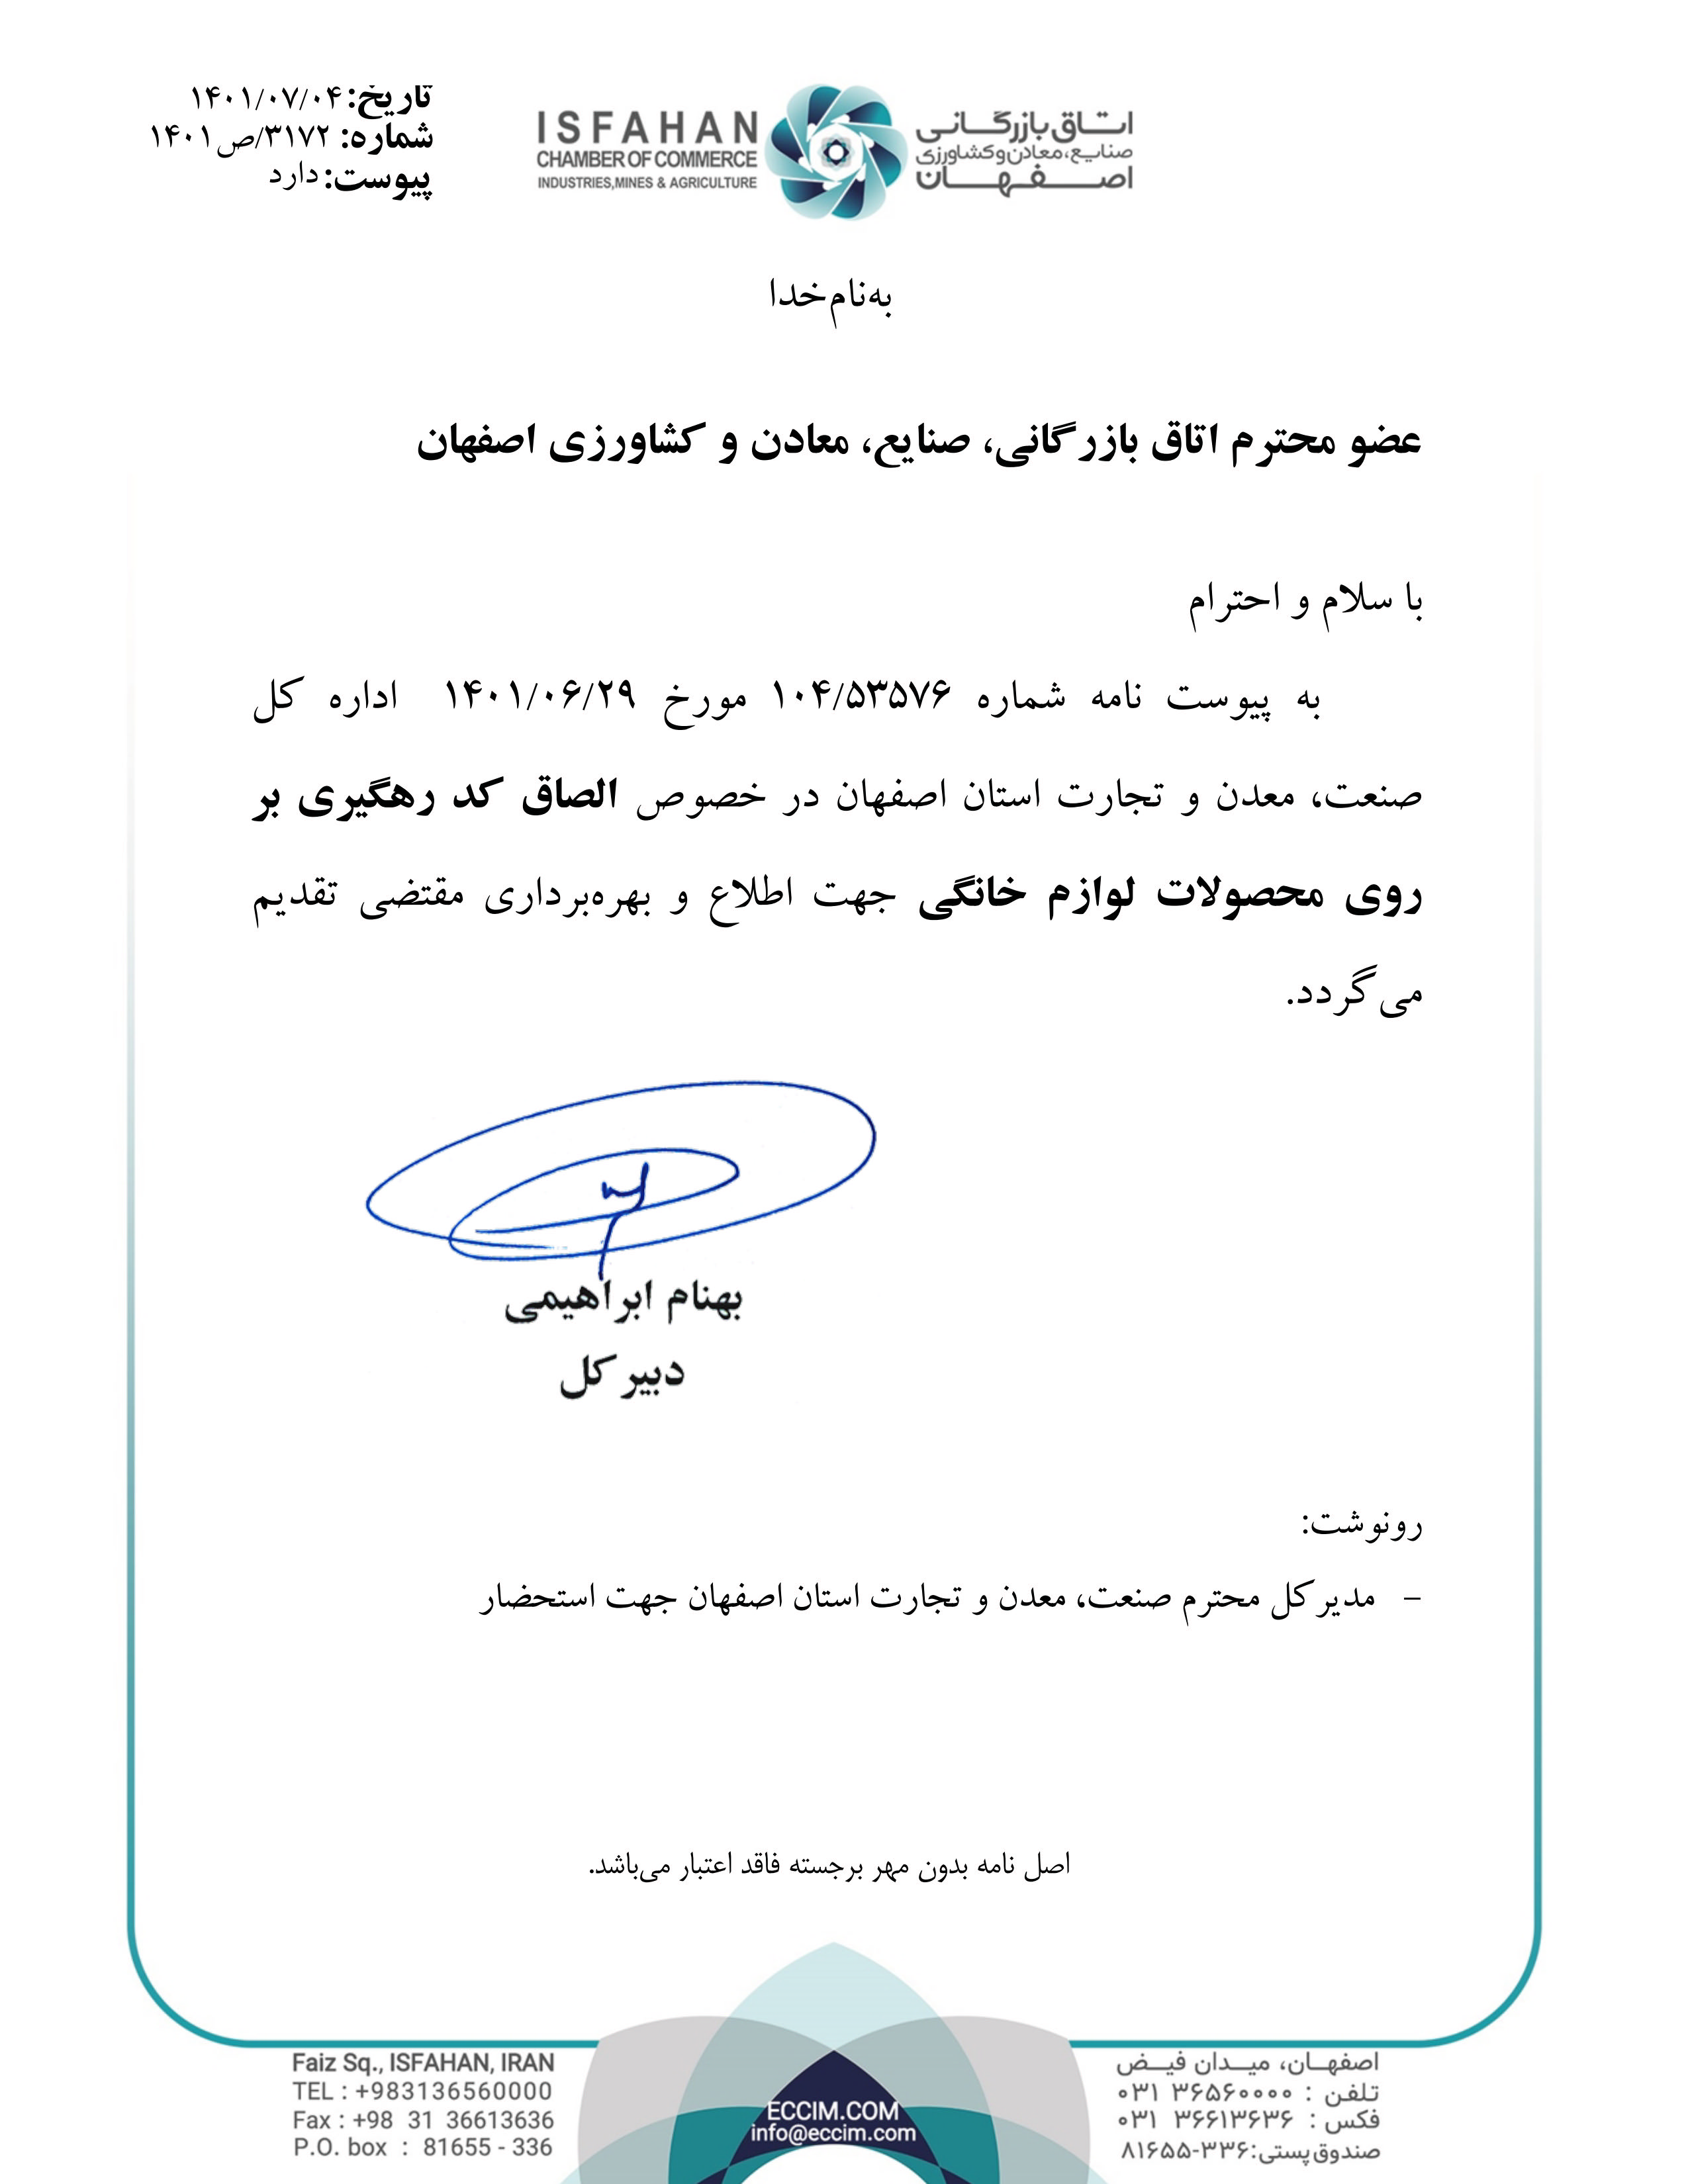 تاریخ: ۱۴۰۱/۰۷/۰۴
شماره: ۳۱۷۲/ص۱۴۰۱
پیوست: دارد
ISFAHAN
CHAMBER OF COMMERCE
INDUSTRIES,MINES & AGRICULTURE
اتاق بازرگانی
صنایع، معادن و کشاورزی
اصفهان
به‌نام‌خدا
عضو محترم اتاق بازرگانی، صنایع، معادن و کشاورزی اصفهان
با سلام و احترام
به پیوست نامه شماره ۱۰۴/۵۳۵۷۶ مورخ ۱۴۰۱/۰۶/۲۹ اداره کل
صنعت، معدن و تجارت استان اصفهان در خصوص الصاق کد رهگیری بر
روی محصولات لوازم خانگی جهت اطلاع و بهره‌برداری مقتضی تقدیم
می‌گردد.
بهنام ابراهیمی
دبیر کل
رونوشت:
– مدیر کل محترم صنعت، معدن و تجارت استان اصفهان جهت استحضار
اصل نامه بدون مهر برجسته فاقد اعتبار می‌باشد.
Faiz Sq., ISFAHAN, IRAN
TEL : +983136560000
Fax : +98 31 36613636
P.O. box : 81655 - 336
ECCIM.COM
info@eccim.com
اصفهان، میدان فیض
تلفن : ۳۶۵۶۰۰۰۰ ۰۳۱
فکس : ۳۶۶۱۳۶۳۶ ۰۳۱
صندوق پستی: ۸۱۶۵۵-۳۳۶